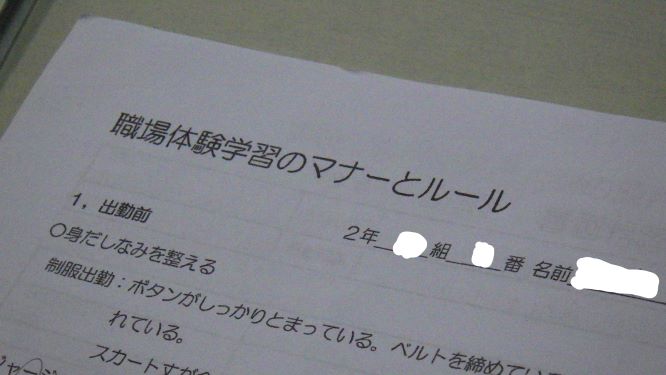 職場体験学習のマナーとルール
2年 組 番 名前
1，出勤前
○身だしなみを整える
制服出勤：ボタンがしっかりとまっている。ベルトを締めてい
れている。
スカート